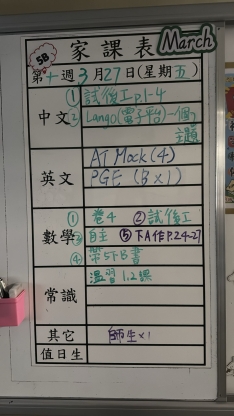 5B
家課表
March
第十週3月27日(星期五)
中文
①試後工p1-4
②Lango(電子平台)一個
主題
英文
AT Mock(4)
PGE (3×1)
數學
①卷4 ②試後工
③自主 ⑤下A作P.24-27
④帶5下B書
常識
溫習1,2課
其它
師生×1
值日生